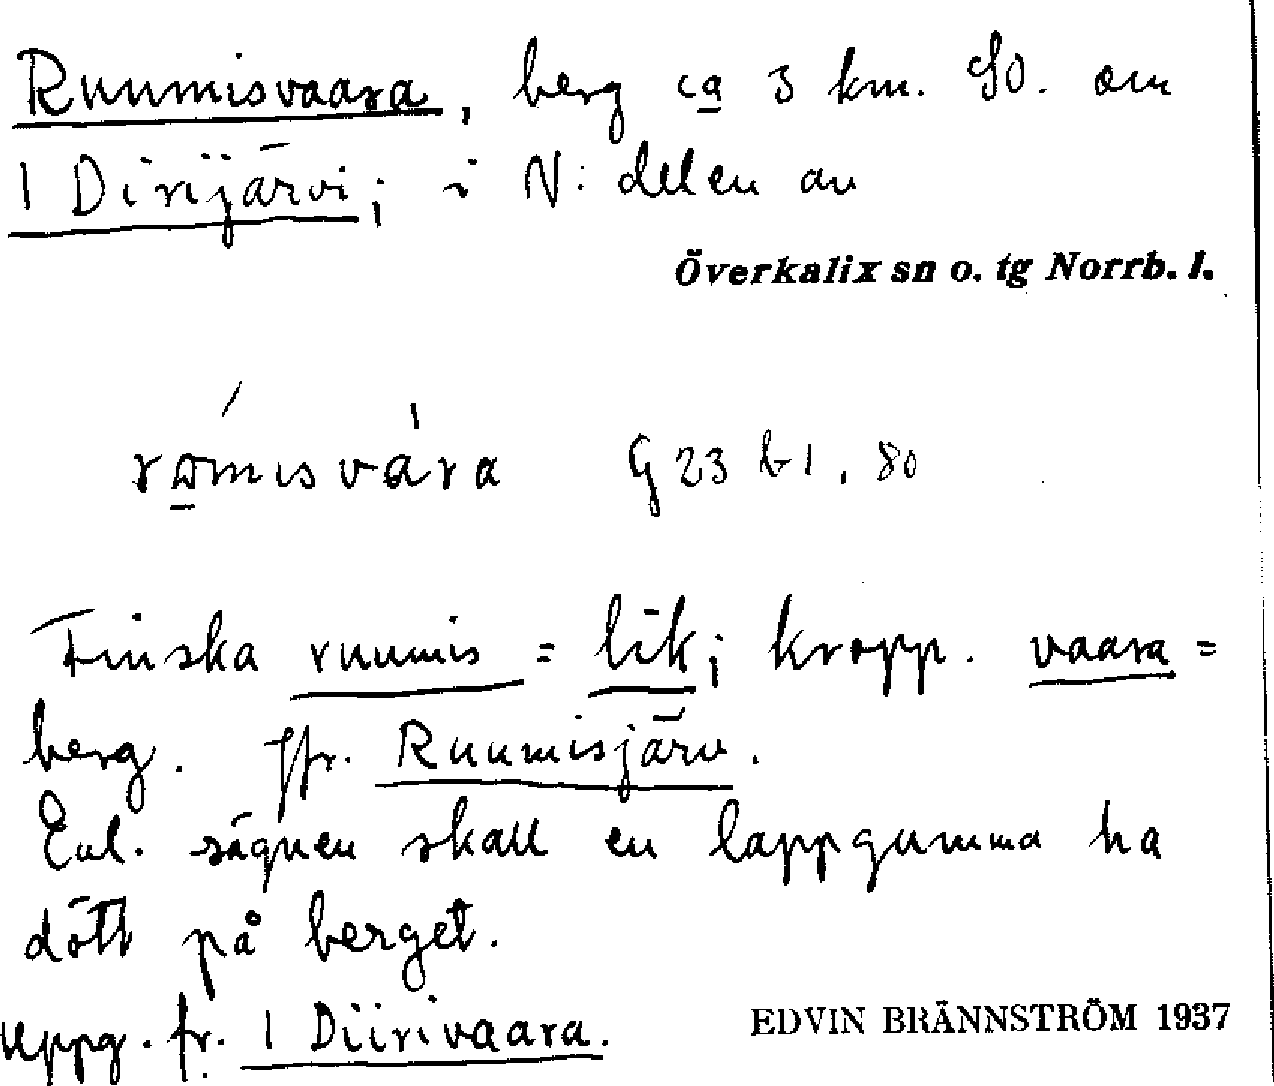 Ruumisvaara, berg ca 3 km. SO. om
1 Dirijärvi; i N: delen av
Överkalix sn o. tg Norrb. l.
G 23 b 1, 80
Finska ruumis = lik; kropp. vaara =
berg. Jfr. Ruumisjärv.
Enl. sägnen skall en lappgumma ha
dött på berget.
uppg. fr. 1 Diirivaara.
EDVIN BRÄNNSTRÖM 1937